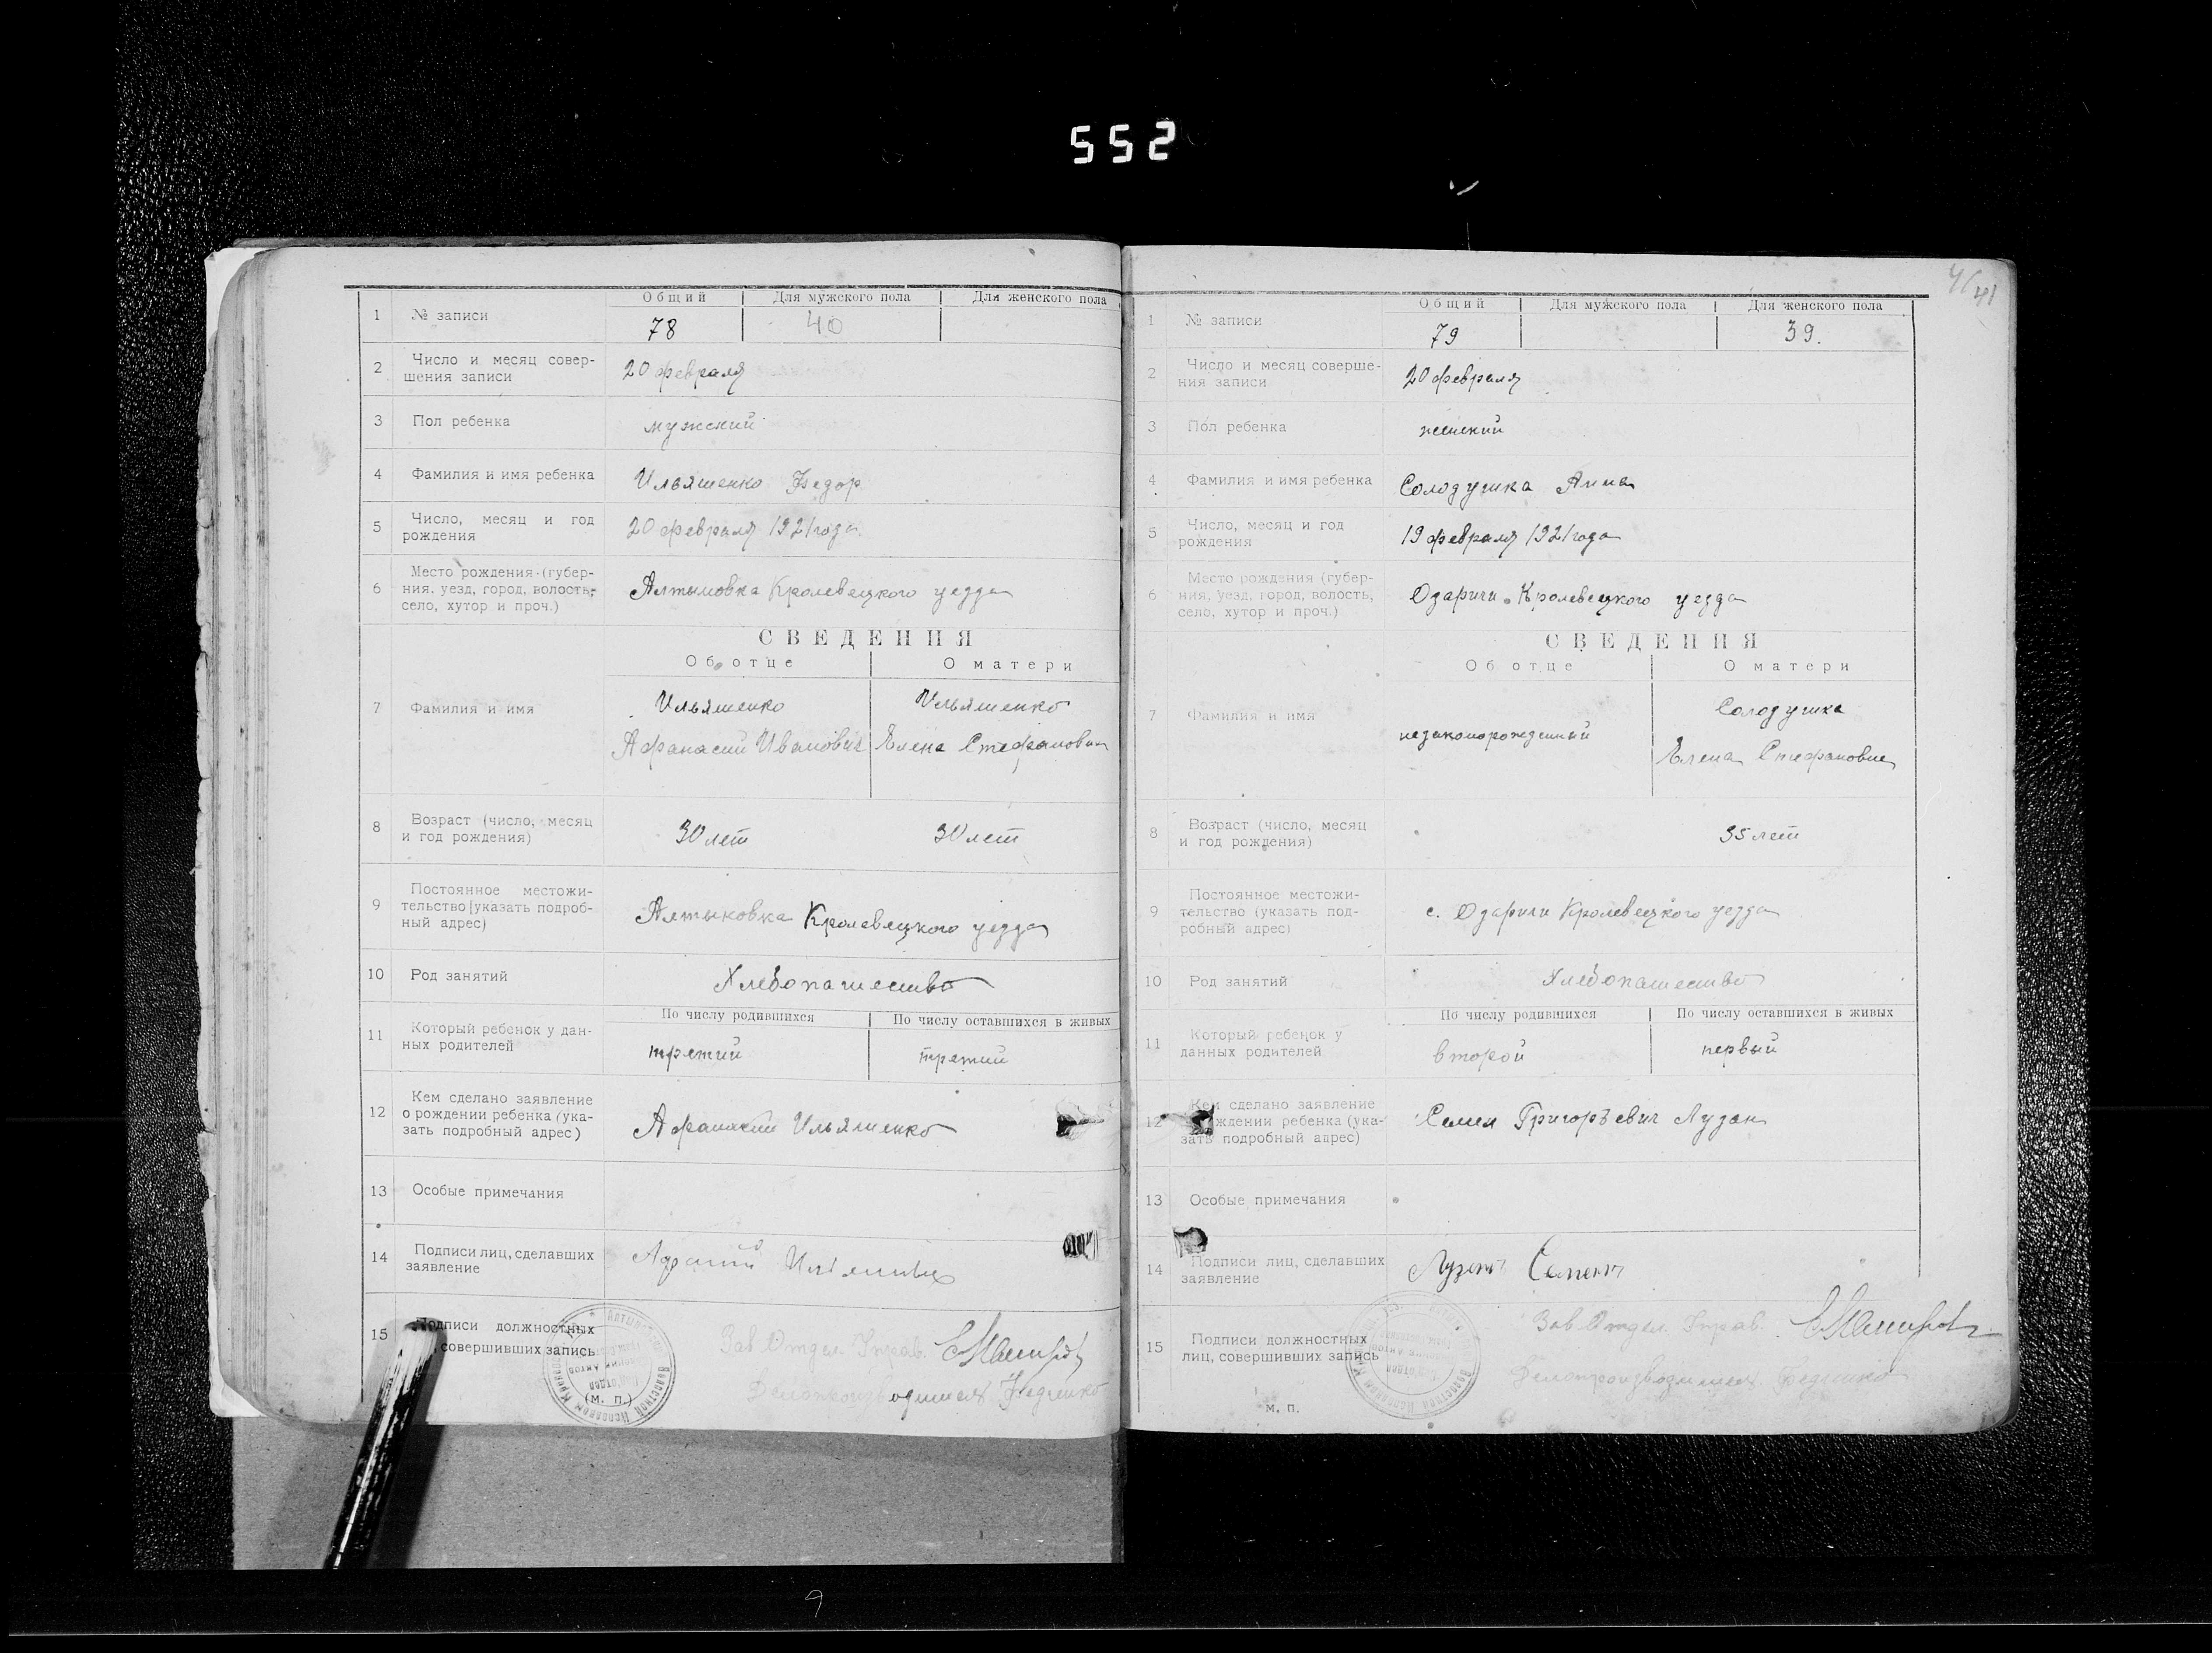 552
Общий Для мужского пола Для женского пола
1 № записи 78 40
2 Число и месяц совер-
шения записи 20 февраля
3 Пол ребенка мужский
4 Фамилия и имя ребенка Ильяшенко Федор
5 Число, месяц и год
рождения 20 февраля 1921 года
6 Место рождения (губер-
ния. уезд, город, волость,
село, хутор и проч.) Алтыновка Кролевецкого уезда
СВЕДЕНИЯ
Об отце О матери
7 Фамилия и имя Ильяшенко Ильяшенко
Афанасий Иванович Елена Стефановна
8 Возраст (число, месяц
и год рождения) 30 лет 30 лет
9 Постоянное местожи-
тельство (указать подроб-
ный адрес) Алтыновка Кролевецкого уезда
10 Род занятий Хлебопашество
По числу родившихся По числу оставшихся в живых
11 Который ребенок у дан-
ных родителей третий третий
12 Кем сделано заявление
о рождении ребенка (ука-
зать подробный адрес) Афанасий Ильяшенко
13 Особые примечания
14 Подписи лиц, сделавших
заявление
15 Подписи должностных
, совершивших запись Зав. Отдел. Управ.
(м. п.) Делопроизводитель Федченко
41 41
Общий Для мужского пола Для женского пола
1 № записи 79 39.
2 Число и месяц соверше-
ния записи 20 февраля
3 Пол ребенка женский
4 Фамилия и имя ребенка Солодушка Анна
5 Число, месяц и год
рождения 19 февраля 1921 года
6 Место рождения (губер-
ния, уезд, город, волость,
село, хутор и проч.) Озаричи Кролевецкого уезда
СВЕДЕНИЯ
Об отце О матери
7 Фамилия и имя незаконорожденный Солодушка
Елена Стефановна
8 Возраст (число, месяц
и год рождения) 35 лет
9 Постоянное местожи-
тельство (указать под-
робный адрес) с. Озаричи Кролевецкого уезда
10 Род занятий Хлебопашество
По числу родившихся По числу оставшихся в живых
11 Который ребенок у
данных родителей второй первый
12 Кем сделано заявление
ждении ребенка (ука-
зать подробный адрес) Семен Григорьевич Лузан
13 Особые примечания
14 Подписи лиц, сделавших
заявление Лузан Семен
15 Подписи должностных
лиц, совершивших запись Зав. Отдел. Управ.
м. п. Делопроизводитель Федченко